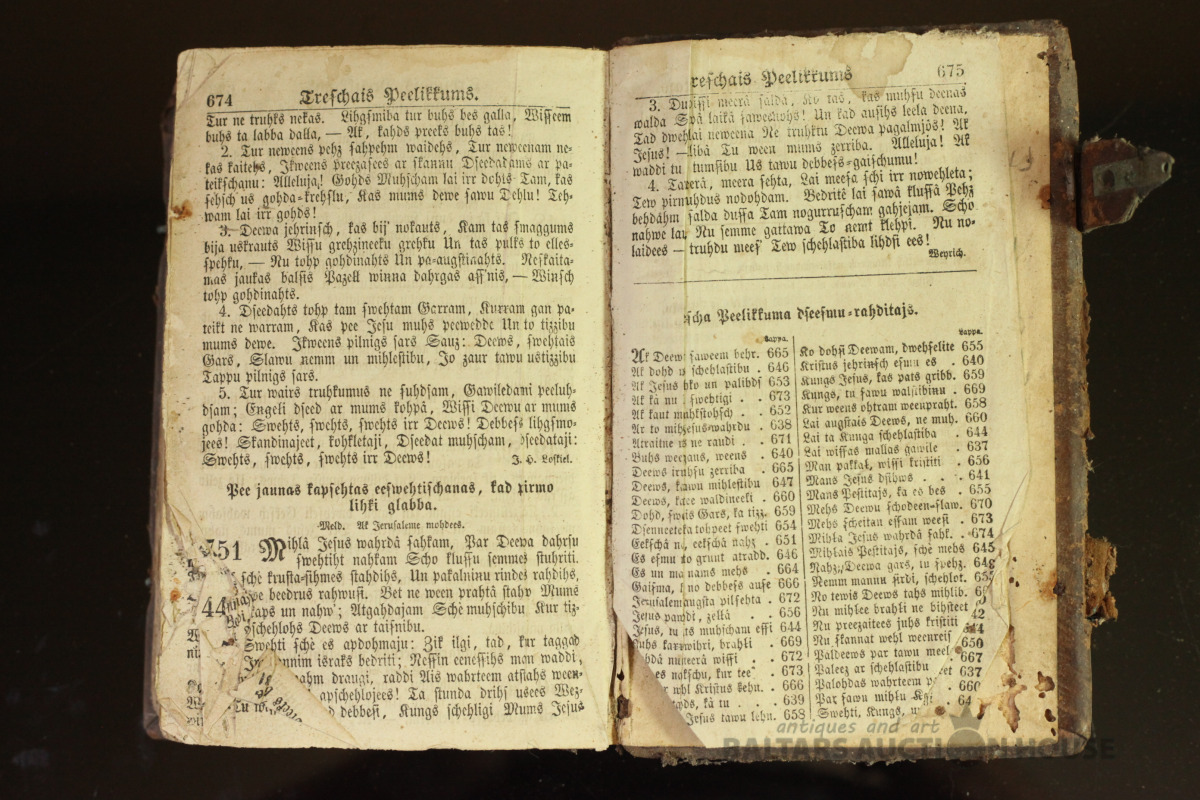 674 Treschais Peelikkums.
Tur ne truhks nekas. Lihgsmiba tur buhs bes galla, Wisseem
buhs ta labba dalla, — Ak, kahds preeks buhs tas!
2. Tur neweens pehz sahpehm waidehs, Tur neweenam ne-
kas kaitehs, Ikweens preezasees ar skannu Dseedadams ar pa-
teikschanu: Alleluja! Gohds Muhscham lai irr dohts Tam, kas
sehsch us gohda-krehslu, Kas mums dewe sawu Dehlu! Teh-
wam lai irr gohds!
3. Deewa jehrinsch, kas bij' nokauts, Kam tas smaggums
bija uskrauts Wissu grehzineeku grehku Un tas pulks to elles-
spehku, — Nu tohp gohdinahts Un pa-augstinahts. Neskaita-
mas jaukas balsis Pazell winna dahrgas ass'nis, — Winsch
tohp gohdinahts.
4. Dseedahts tohp tam swehtam Garram, Kurram gan pa-
teikt ne warram, Kas pee Jesu muhs peewedde Un to tizzibu
mums dewe. Ikweens pilnigs sars Sauz: Deews, swehtais
Gars, Slawu nemm un mihlestibu, Jo zaur tawu ustizzibu
Tappu pilnigs sars.
5. Tur wairs truhkumus ne suhdsam, Gawiledami peeluh-
dsam; Engeli dseed ar mums kohpâ, Wissi Deewu ar mums
gohda: Swehts, swehts, swehts irr Deews! Debbess lihgsmo-
jees! Skandinajeet, kohkletaji, Dseedat muhscham, dseedataji:
Swehts, swehts, swehts irr Deews! J. H. Loskiel.
Pee jaunas kapsehtas eeswehtischanas, kad pirmo
lihki glabba.
Meld. Ak Jerusaleme mohdees.
751 Mihlâ Jesus wahrdâ sahkam, Par Deewa dahrsu
swehtiht nahkam Scho klussu semmes stuhriti.
schê krusta-sihmes stahdihs, Un pakalninu rindes rahdihs,
beedrus rahwusi. Bet ne ween prahtâ stahw Mums
44 kaps un nahw'; Atgahdajam Schè muhschibu Kur tiz-
schehlohs Deews ar taisnibu.
Swehti schè es apdohmaju: Zik ilgi, tad, kur taggad
israks bedriti; Nessin eenessihs man waddi,
draugi, raddi Ais wahrteem atslahs ween-
apschehlojees! Ta stunda drihs usees Wez-
debbesi, Kungs schehligi Mums Jesus
Treschais Peelikkums 675
3. meerâ saldâ, Ko tas, kas muhsu deenas
walda Spâ laikâ Un kad ausihs leela deena,
Tad neweena Ne truhktu Deewa pagalmjôs! Ak
Jesus! — Tu ween mums zerriba. Alleluja! Ak
waddi tu tumsibu Us tawu debbess-gaischumu!
4. meera sehta, Lai meesa schi irr nowehleta;
Tew nodohdam. Bedritê lai sawâ klussâ Pehz
behdahm salda dussa Tam nogurruscham gahjejam. Scho
nahwe Nu semme gattawa To nemt klehpi. Nu no-
laidees — mees' Tew schehlastiba lihdsi ees!
Weyrich.
scha Peelikkuma dseesmu-rahditajs.
Lappa.
Ak Deews saweem behr. 665
Ak dohd schehlastibu . 646
Ak Jesus un palihds 653
Ak kâ nu swehtigi . . 673
Ak kaut . . 652
Ar to wahrdu . 638
Atraitne ne raudi . . 671
Buhs weens . 640
Deews zerriba . 665
Deews, tawu mihlestibu 647
Deews, waldineeki . 660
Dohd, Gars, ka tizz. 659
tohpeet swehti 654
Eekschâ eekschâ nahz . 651
Es esmu grunt atradd. 646
Es un nams mehs . 664
Gaisma, no debbess ause 666
Jerusaleme augsta pilsehta . 672
Jesus zeltâ . . 656
Jesus, tu muhscham essi 644
brahli . . 669
meerâ wissi . . 672
kur tee . 673
Kristus . 666
kâ tu . . 639
Jesus tawu 658
Lappa.
Ko dohsi Deewam, dwehselite 655
Kristus jehrinsch esmu es . 640
Kungs Jesus, kas pats gribb. 659
Kungs, tu sawu walstibinu . 669
Kur weens ohtram weenpraht. 658
Lai augstais Deews, ne muh. 660
Lai ta Kunga schehlastiba . 644
Lai wissas mallas gawile . 637
Man pakkal, wissi kristiti . 656
Mans Jesus dsihws . . . 641
Mans Pestitajs, ka es bes . 655
Mehs Deewu schodeen-slaw. 670
Mehs scheitan essam weesi . 673
Mihla Jesus wahrdâ sahk. . 674
Mihlais Pestitajs, schê mehs 645
Nahz, Deewa gars, tu spehz.
Nemm mannu sirdi, schehlot.
No tewis Deews tahs mihlib.
Nu mihlee brahli ne bihsteet
Nu preezaitees juhs kristiti
Nu skannat wehl weenreis 656
Paldeews par tawu meel 667
Paleez ar schehlastibu
Palohdas wahrteem 660
Par sawu mihlu
Swehti, Kungs,
antiques and art
BALTARS AUCTION HOUSE